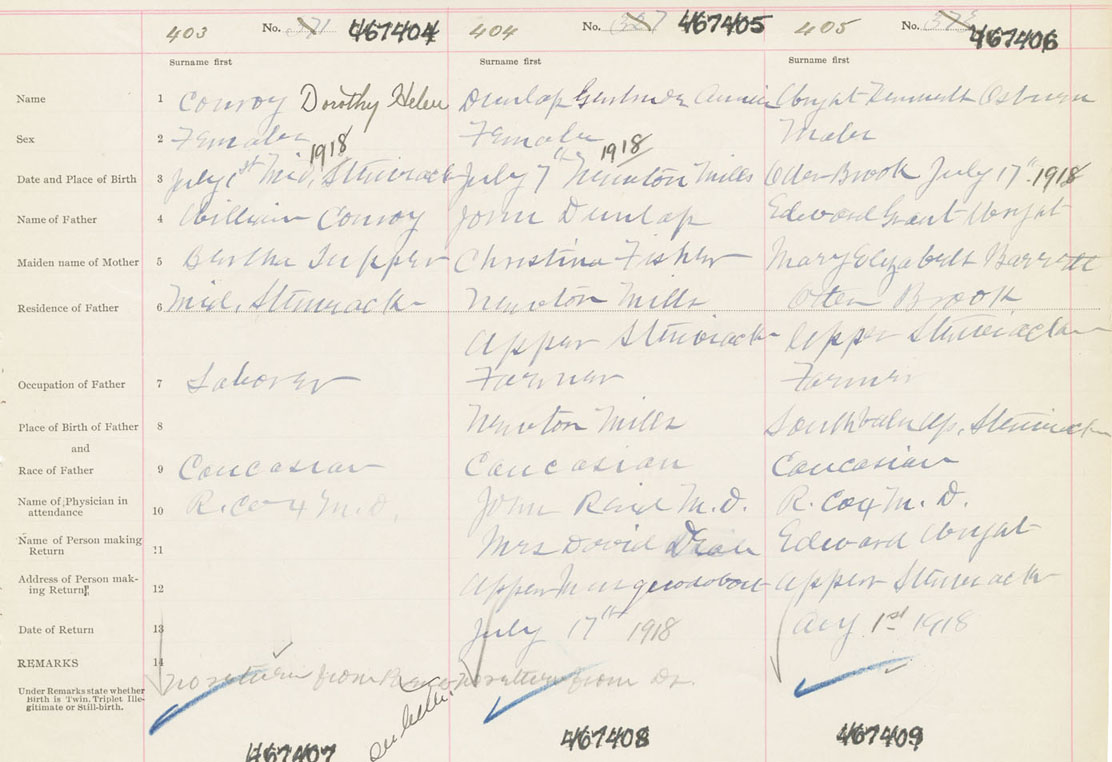 403 No. 371 467404 404 No. 467405 405 No. 467406
Surname first Surname first Surname first
Name 1 Conroy Dorothy Helen Dunlap Gertrude Annie Wright Kenneth Osburn
Sex 2 Female Female Male
1918 1918
Date and Place of Birth 3 July 1st Mid. Stewiacke July 7th Newton Mills Otter Brook July 17th 1918
Name of Father 4 William Conroy John Dunlap Edward Grant Wright
Maiden name of Mother 5 Bertha Tupper Christina Fisher Mary Elizabeth Barrett
Residence of Father 6 Mid. Stewiacke Newton Mills Otter Brook
Upper Stewiacke Upper Stewiacke
Occupation of Father 7 Laborer Farmer Farmer
Place of Birth of Father 8 Newton Mills Up. Stewiacke
and
Race of Father 9 Caucasian Caucasian Caucasian
Name of Physician in
attendance 10 R. Cox M.D. John Reid M.D. R. Cox M.D.
Name of Person making
Return 11 Mrs David Dean Edward Wright
Address of Person mak-
ing Return 12 Upper Musquodoboit Upper Stewiacke
Date of Return 13 July 17th 1918 Aug 1st 1918
REMARKS 14 no return from no return from Dr.
Under Remarks state whether
Birth is Twin, Triplet Ille-
gitimate or Still-birth.
467407 467408 467409